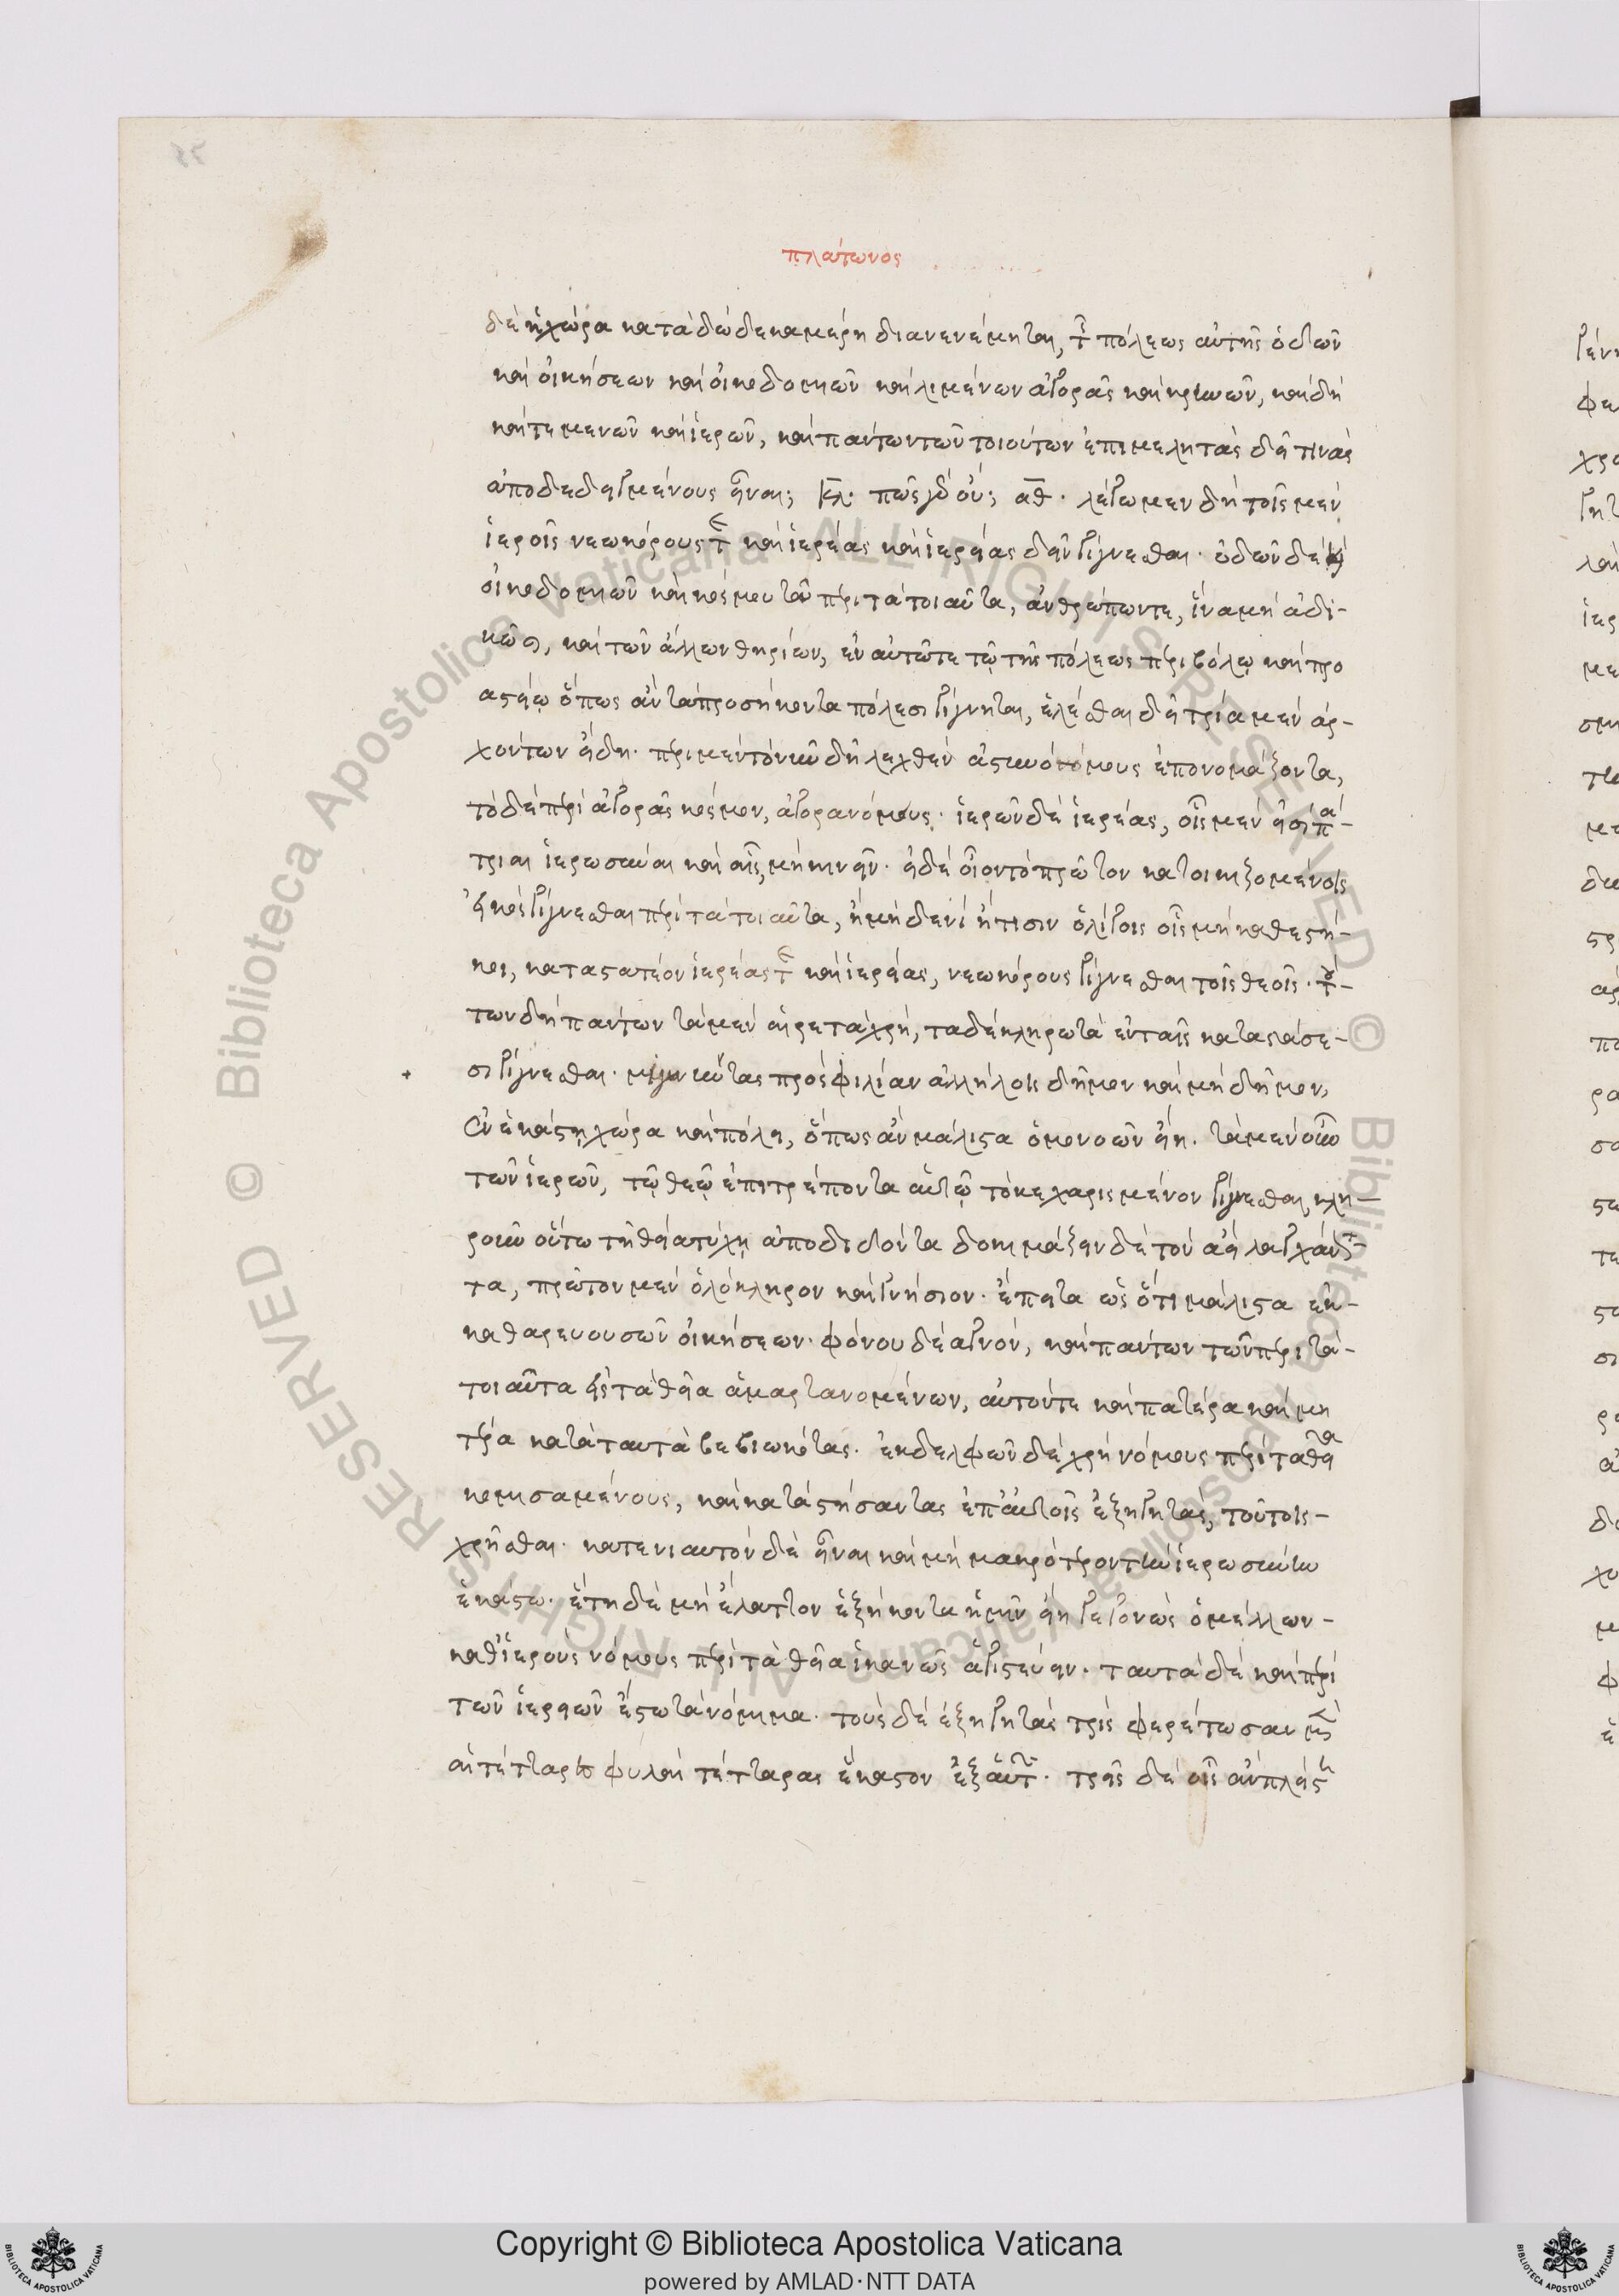 πλάτωνος
δὲ ἡ χώρα κατὰ δώδεκα μέρη διανενέμηται, τῆς πόλεως αὐτῆς ὁδῶν
καὶ οἰκήσεων καὶ οἰκοδομιῶν καὶ λιμένων ἀγορᾶς καὶ κρηνῶν, καὶ δὴ
καὶ τεμενῶν καὶ ἱερῶν, καὶ πάντων τῶν τοιούτων ἐπιμελητὰς δεῖ τινὰς
ἀποδεδειγμένους εἶναι; Κλ. πῶς γὰρ οὔ; ἀθ. λέγωμεν δὴ τοῖς μὲν
ἱεροῖς νεωκόρους τε καὶ ἱερέας καὶ ἱερείας δεῖν γίγνεσθαι. ὁδῶν δὲ καὶ
οἰκοδομιῶν καὶ κόσμου τοῦ περὶ τὰ τοιαῦτα, ἀνθρώπων τε, ἵνα μὴ ἀδι-
κῶσι, καὶ τῶν ἄλλων θηρίων, ἐν αὐτῷ τε τῷ τῆς πόλεως περιβόλῳ καὶ προ
αστείῳ ὅπως ἂν τὰ προσήκοντα πόλεσι γίγνηται, ἑλέσθαι δεῖ τρία μὲν ἀρ-
χόντων εἴδη. περὶ μὲν τὸ νῦν δὴ λεχθὲν ἀστυνόμους ἐπονομάζοντα,
τὸ δὲ περὶ ἀγορᾶς κόσμον, ἀγορανόμους. ἱερῶν δὲ ἱερέας, οἷς μέν εἰσι πά-
τριαι ἱερωσύναι καὶ αἷς, μὴ κινεῖν. εἰ δὲ οἷον τὸ πρῶτον κατοικιζομένοις
εἰκὸς γίγνεσθαι περὶ τὰ τοιαῦτα, ἢ μηδενὶ ἤ τισιν ὀλίγοις οἷς μὴ καθεστή-
κοι, καταστατέον ἱερέας τε καὶ ἱερείας, νεωκόρους γίγνεσθαι τοῖς θεοῖς. τού-
των δὴ πάντων τὰ μὲν αἱρετὰ χρή, τὰ δὲ κληρωτὰ ἐν ταῖς καταστάσε-
σι γίγνεσθαι. μιγνύντας πρὸς φιλίαν ἀλλήλοις δῆμον καὶ μὴ δῆμον,
ἐν ἑκάστῃ χώρα καὶ πόλει, ὅπως ἂν μάλιστα ὁμονοῶν εἴη. τὰ μὲν οὖν
τῶν ἱερῶν, τῷ θεῷ ἐπιτρέποντα αὐτῷ τὸ κεχαρισμένον γίγνεσθαι, κλη-
ροῦν οὕτω τῇ θείᾳ τύχῃ ἀποδιδόντα δοκιμάζειν δὲ τὸν ἀεὶ λαγχάνον-
τα, πρῶτον μὲν ὁλόκληρον καὶ γνήσιον. ἔπειτα ὡς ὅτι μάλιστα ἐκ-
καθαρευουσῶν οἰκήσεων. φόνου δὲ ἁγνόν, καὶ πάντων τῶν περὶ τὰ-
τοιαῦτα εἰς τὰ θεῖα ἁμαρτανομένων, αὐτόν τε καὶ πατέρα καὶ μη
τέρα κατὰ ταυτὰ βεβιωκότας. ἐκ δελφῶν δὲ χρὴ νόμους περὶ τὰ θεῖα
κομισαμένους, καὶ καταστήσαντας ἐπ' αὐτοῖς ἐξηγητάς, τούτοις-
χρῆσθαι. κατ' ἐνιαυτὸν δὲ εἶναι καὶ μὴ μακρότερον τὴν ἱερωσύνην
ἑκάστω. ἔτη δὲ μὴ ἔλαττον ἑξήκοντα ἡμῖν εἴη γεγονὼς ὁ μέλλων-
καθ' ἱεροὺς νόμους περὶ τὰ θεῖα ἱκανῶς ἁγιστεύειν. ταυτὰ δὲ καὶ περὶ
τῶν ἱερειῶν ἔστω τὰ νόμιμα. τοὺς δὲ ἐξηγητὰς τρὶς φερέτωσαν μὲν
αἱ τέτταρες φυλαὶ τέτταρας ἕκαστον ἐξ αὐτῶν. τρεῖς δὲ οἷς ἂν πλείστη